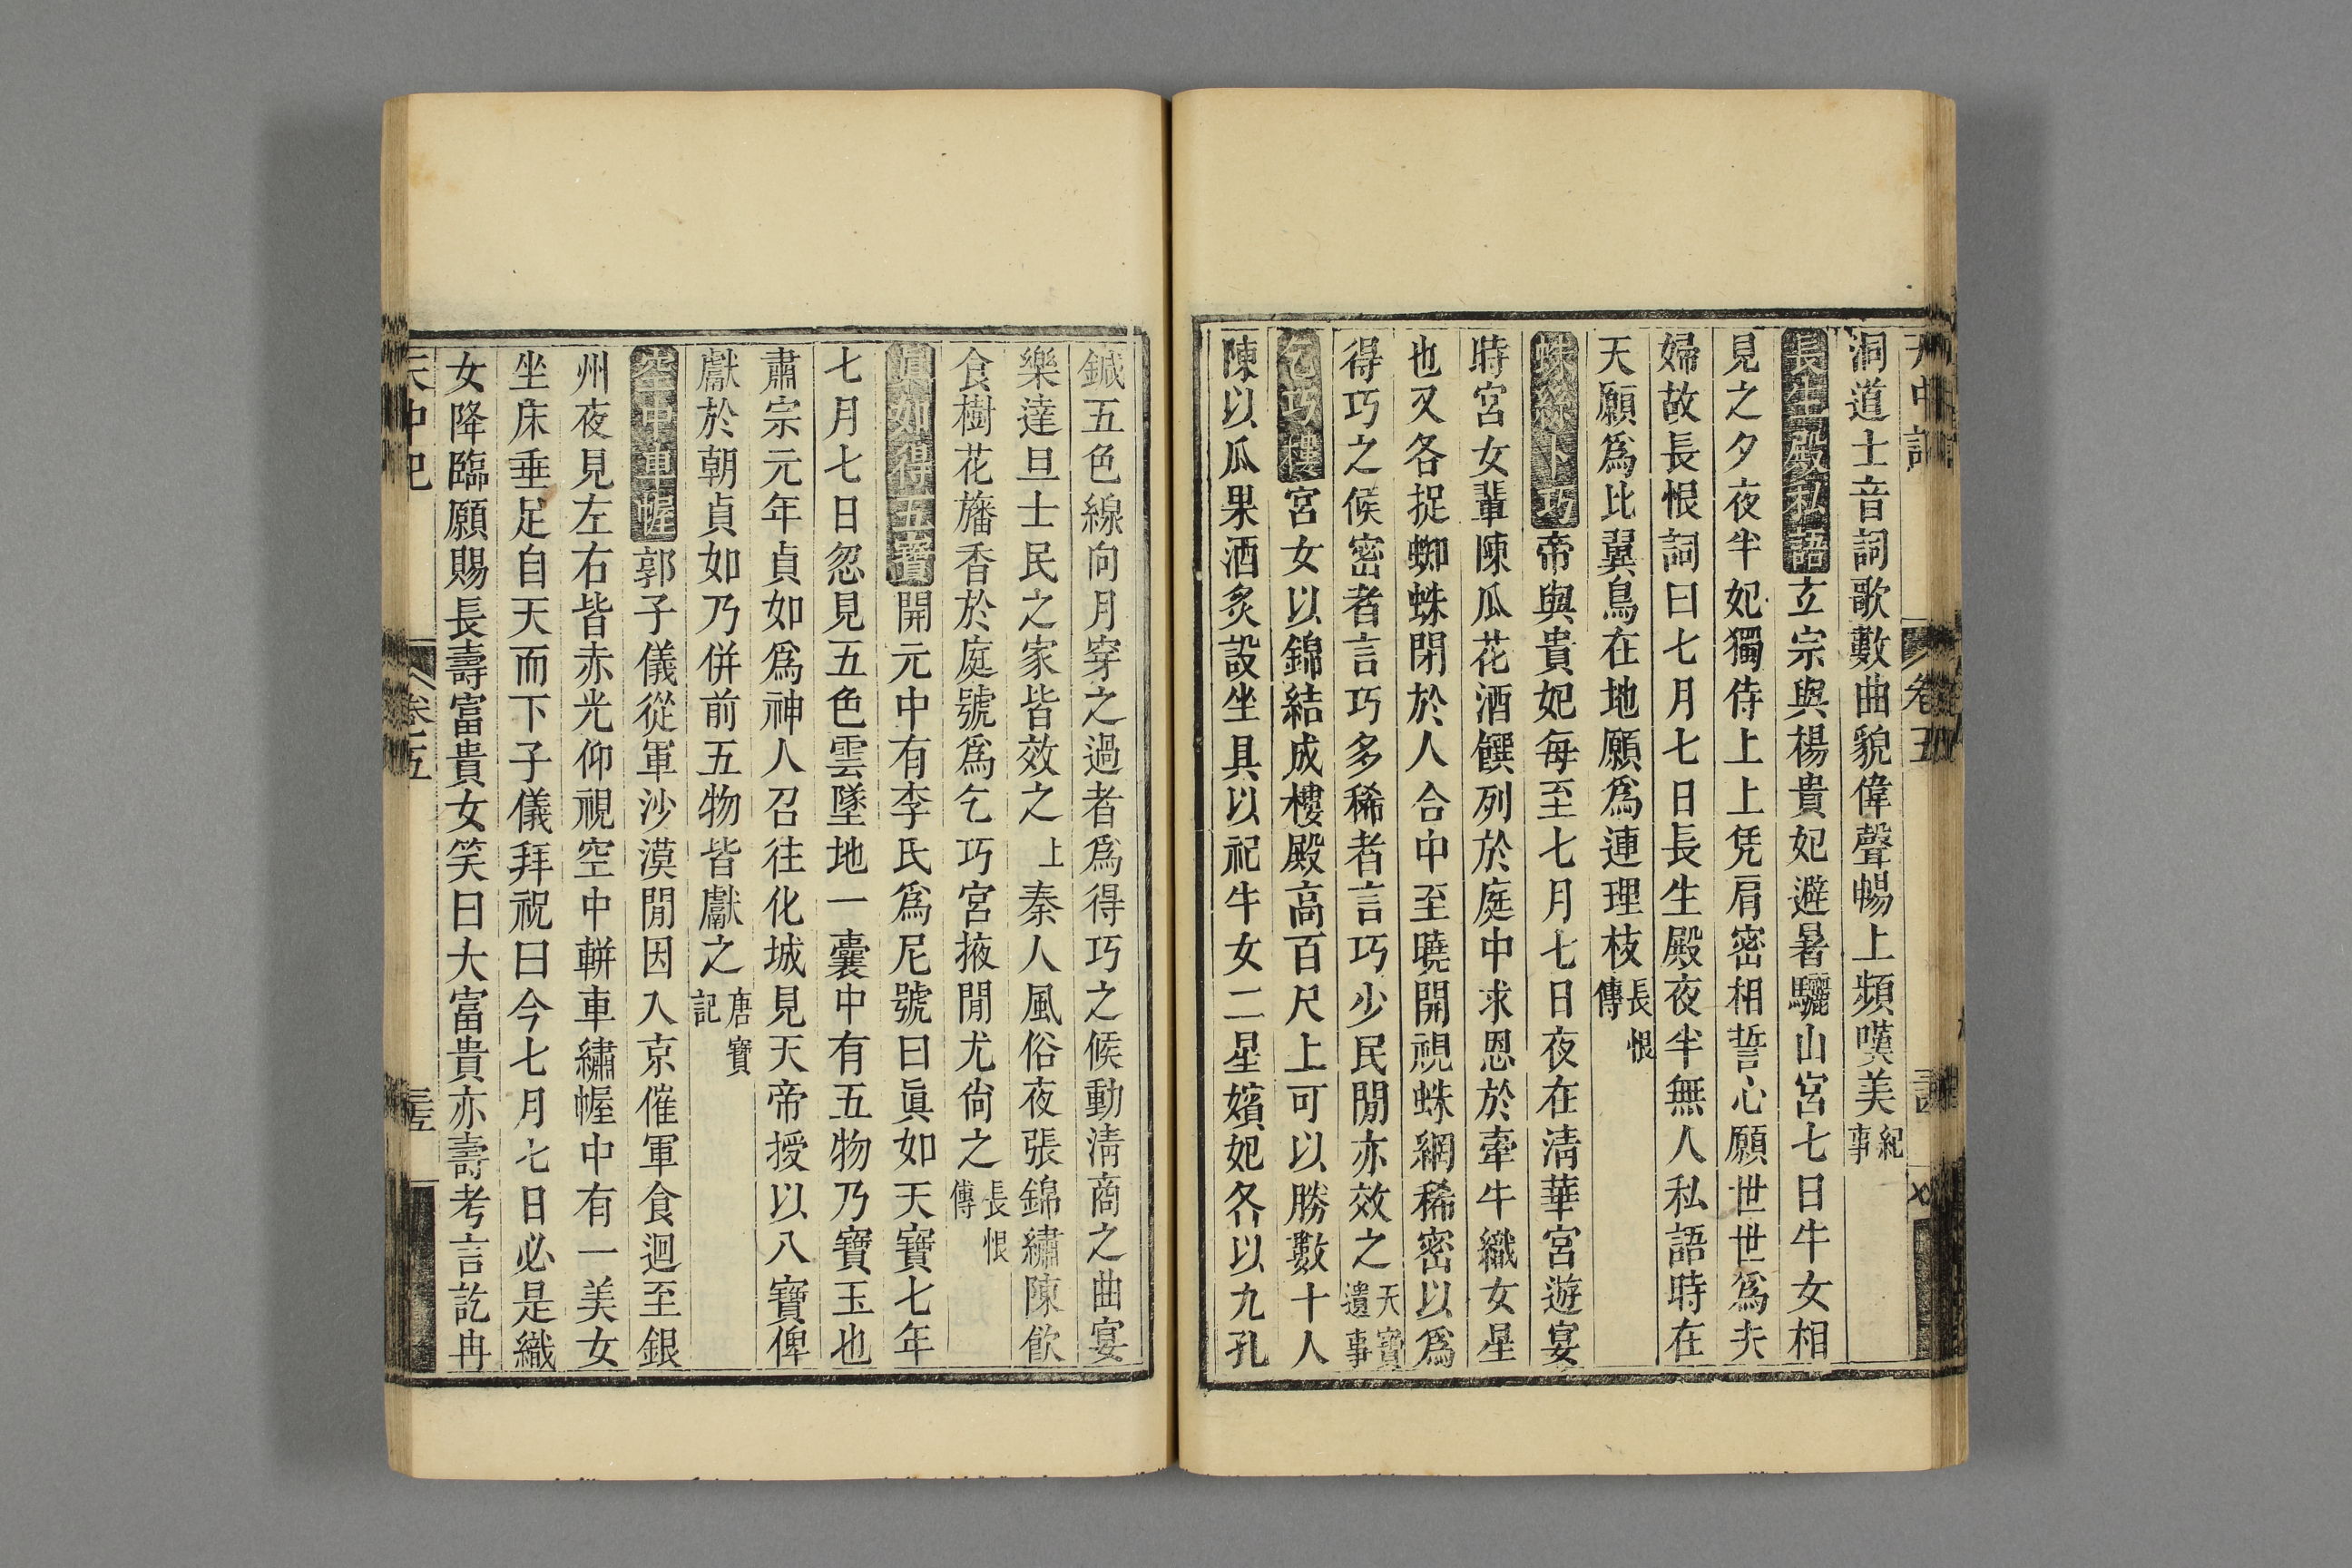 洞道士音詞歌數曲貌偉聲暢上頻嘆美紀事
長生殿私語玄宗與楊貴妃避暑驪山宮七日牛女相
見之夕夜半妃獨侍上上凭肩密相誓心願世世爲夫
婦故長恨詞曰七月七日長生殿夜半無人私語時在
天願爲比翼鳥在地願爲連理枝長恨傳
蛛絲卜巧帝與貴妃每至七月七日夜在清華宮遊宴
時宮女輩陳瓜花酒饌列於庭中求恩於牽牛織女星
也又各捉蜘蛛閉於人合中至曉開視蛛網稀密以爲
得巧之候密者言巧多稀者言巧少民閒亦效之天寶遺事
乞巧樓宮女以錦結成樓殿高百尺上可以勝數十人
陳以瓜果酒炙設坐具以祀牛女二星嬪妃各以九孔
鍼五色線向月穿之過者爲得巧之候動清商之曲宴
樂達旦士民之家皆效之上秦人風俗夜張錦繡陳飲
食樹花旛香於庭號爲乞巧宮掖閒尤尙之長恨傳
眞如得五寶開元中有李氏爲尼號曰眞如天寶七年
七月七日忽見五色雲墜地一囊中有五物乃寶玉也
肅宗元年貞如爲神人召往化城見天帝授以八寶俾
獻於朝貞如乃併前五物皆獻之唐寶記
空中車幄郭子儀從軍沙漠閒因入京催軍食迴至銀
州夜見左右皆赤光仰視空中輧車繡幄中有一美女
坐床垂足自天而下子儀拜祝曰今七月七日必是織
女降臨願賜長壽富貴女笑曰大富貴亦壽考言訖冉
天中記 卷五